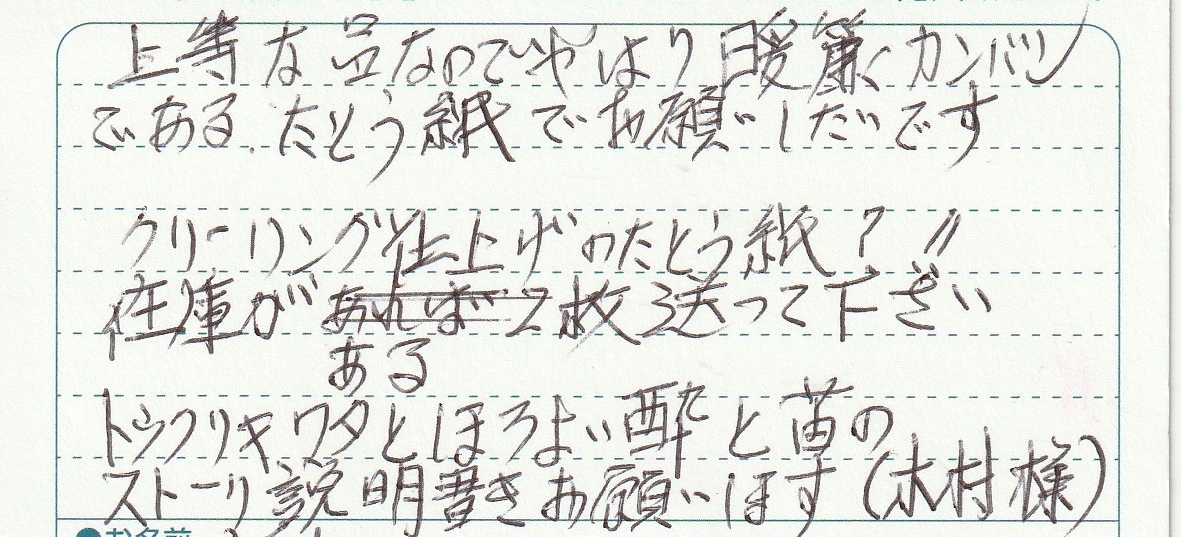 上等な品なのでやはり暖簾カンバン
である。たとう紙でお願いしたいです
クリーリング仕上げのたとう紙?〃
在庫があれば2枚送って下ざい
ある
トックリキワタとほろよい酔と苗の
ストーリ説明書きお願いします(木村様)